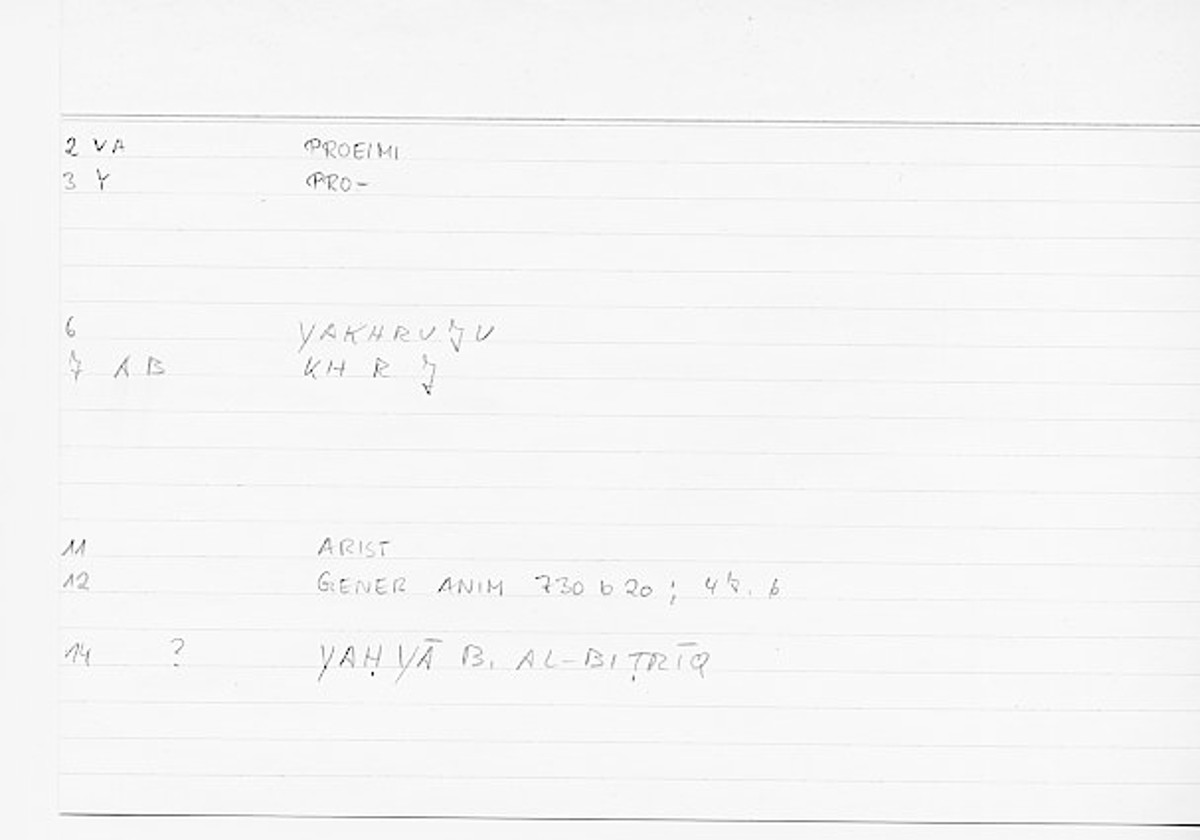 2 VA PROEIMI
3 Y PRO-
6 YAKHRUJU
7 AB KH R J
11 ARIST
12 GENER ANIM 730 b 20 ; 47. 6
14 ? YAḤYĀ B. AL-BIṬRĪQ